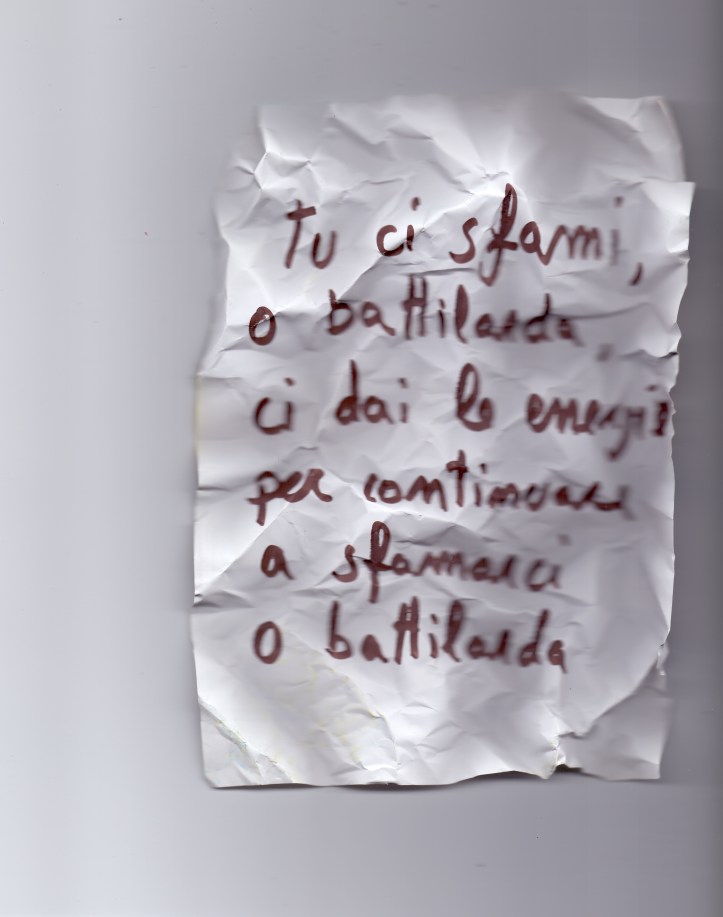 Tu ci sfami,
o battilarda,
ci dai le energie
per continuare
a sfamarci
o battilarda